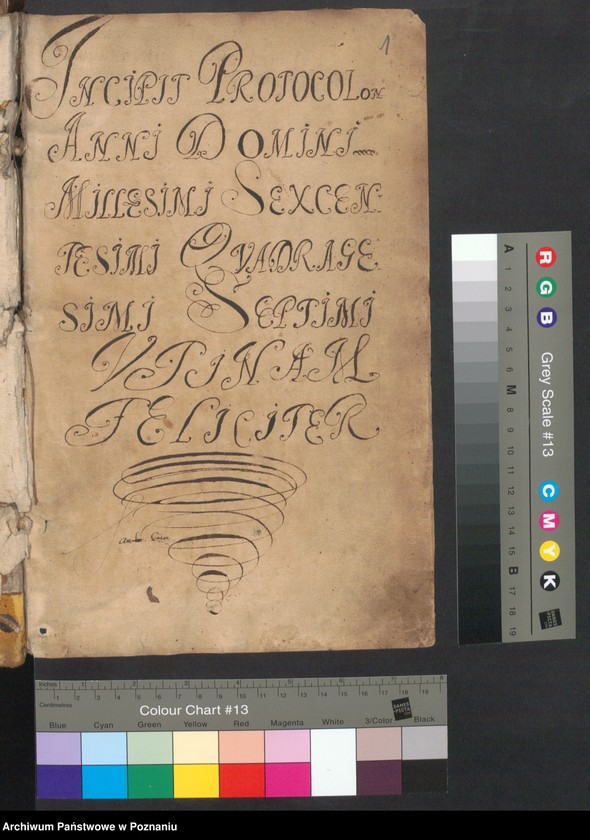 1
INCIPIT PROTOCOLON
ANNI DOMINI
MILLESIMI SEXCEN:
TESIMI QVADRAGE
SIMI SEPTIMI
VTINAM
FELICITER
A 1 2 3 4 5 6 M 8 9 10 11 12 13 14 15 B 17 18 19
R G B
Grey Scale #13
C M Y K
DANES PICTA
Inches 1 2 3 4 5 6 7 8
Centimetres 1 2 3 4 5 6 7 8 9 10 11 12 13 14 15 16 17 18 19
Colour Chart #13
DANES PICTA
Blue Cyan Green Yellow Red Magenta White 3/Color Black
Archiwum Państwowe w Poznaniu